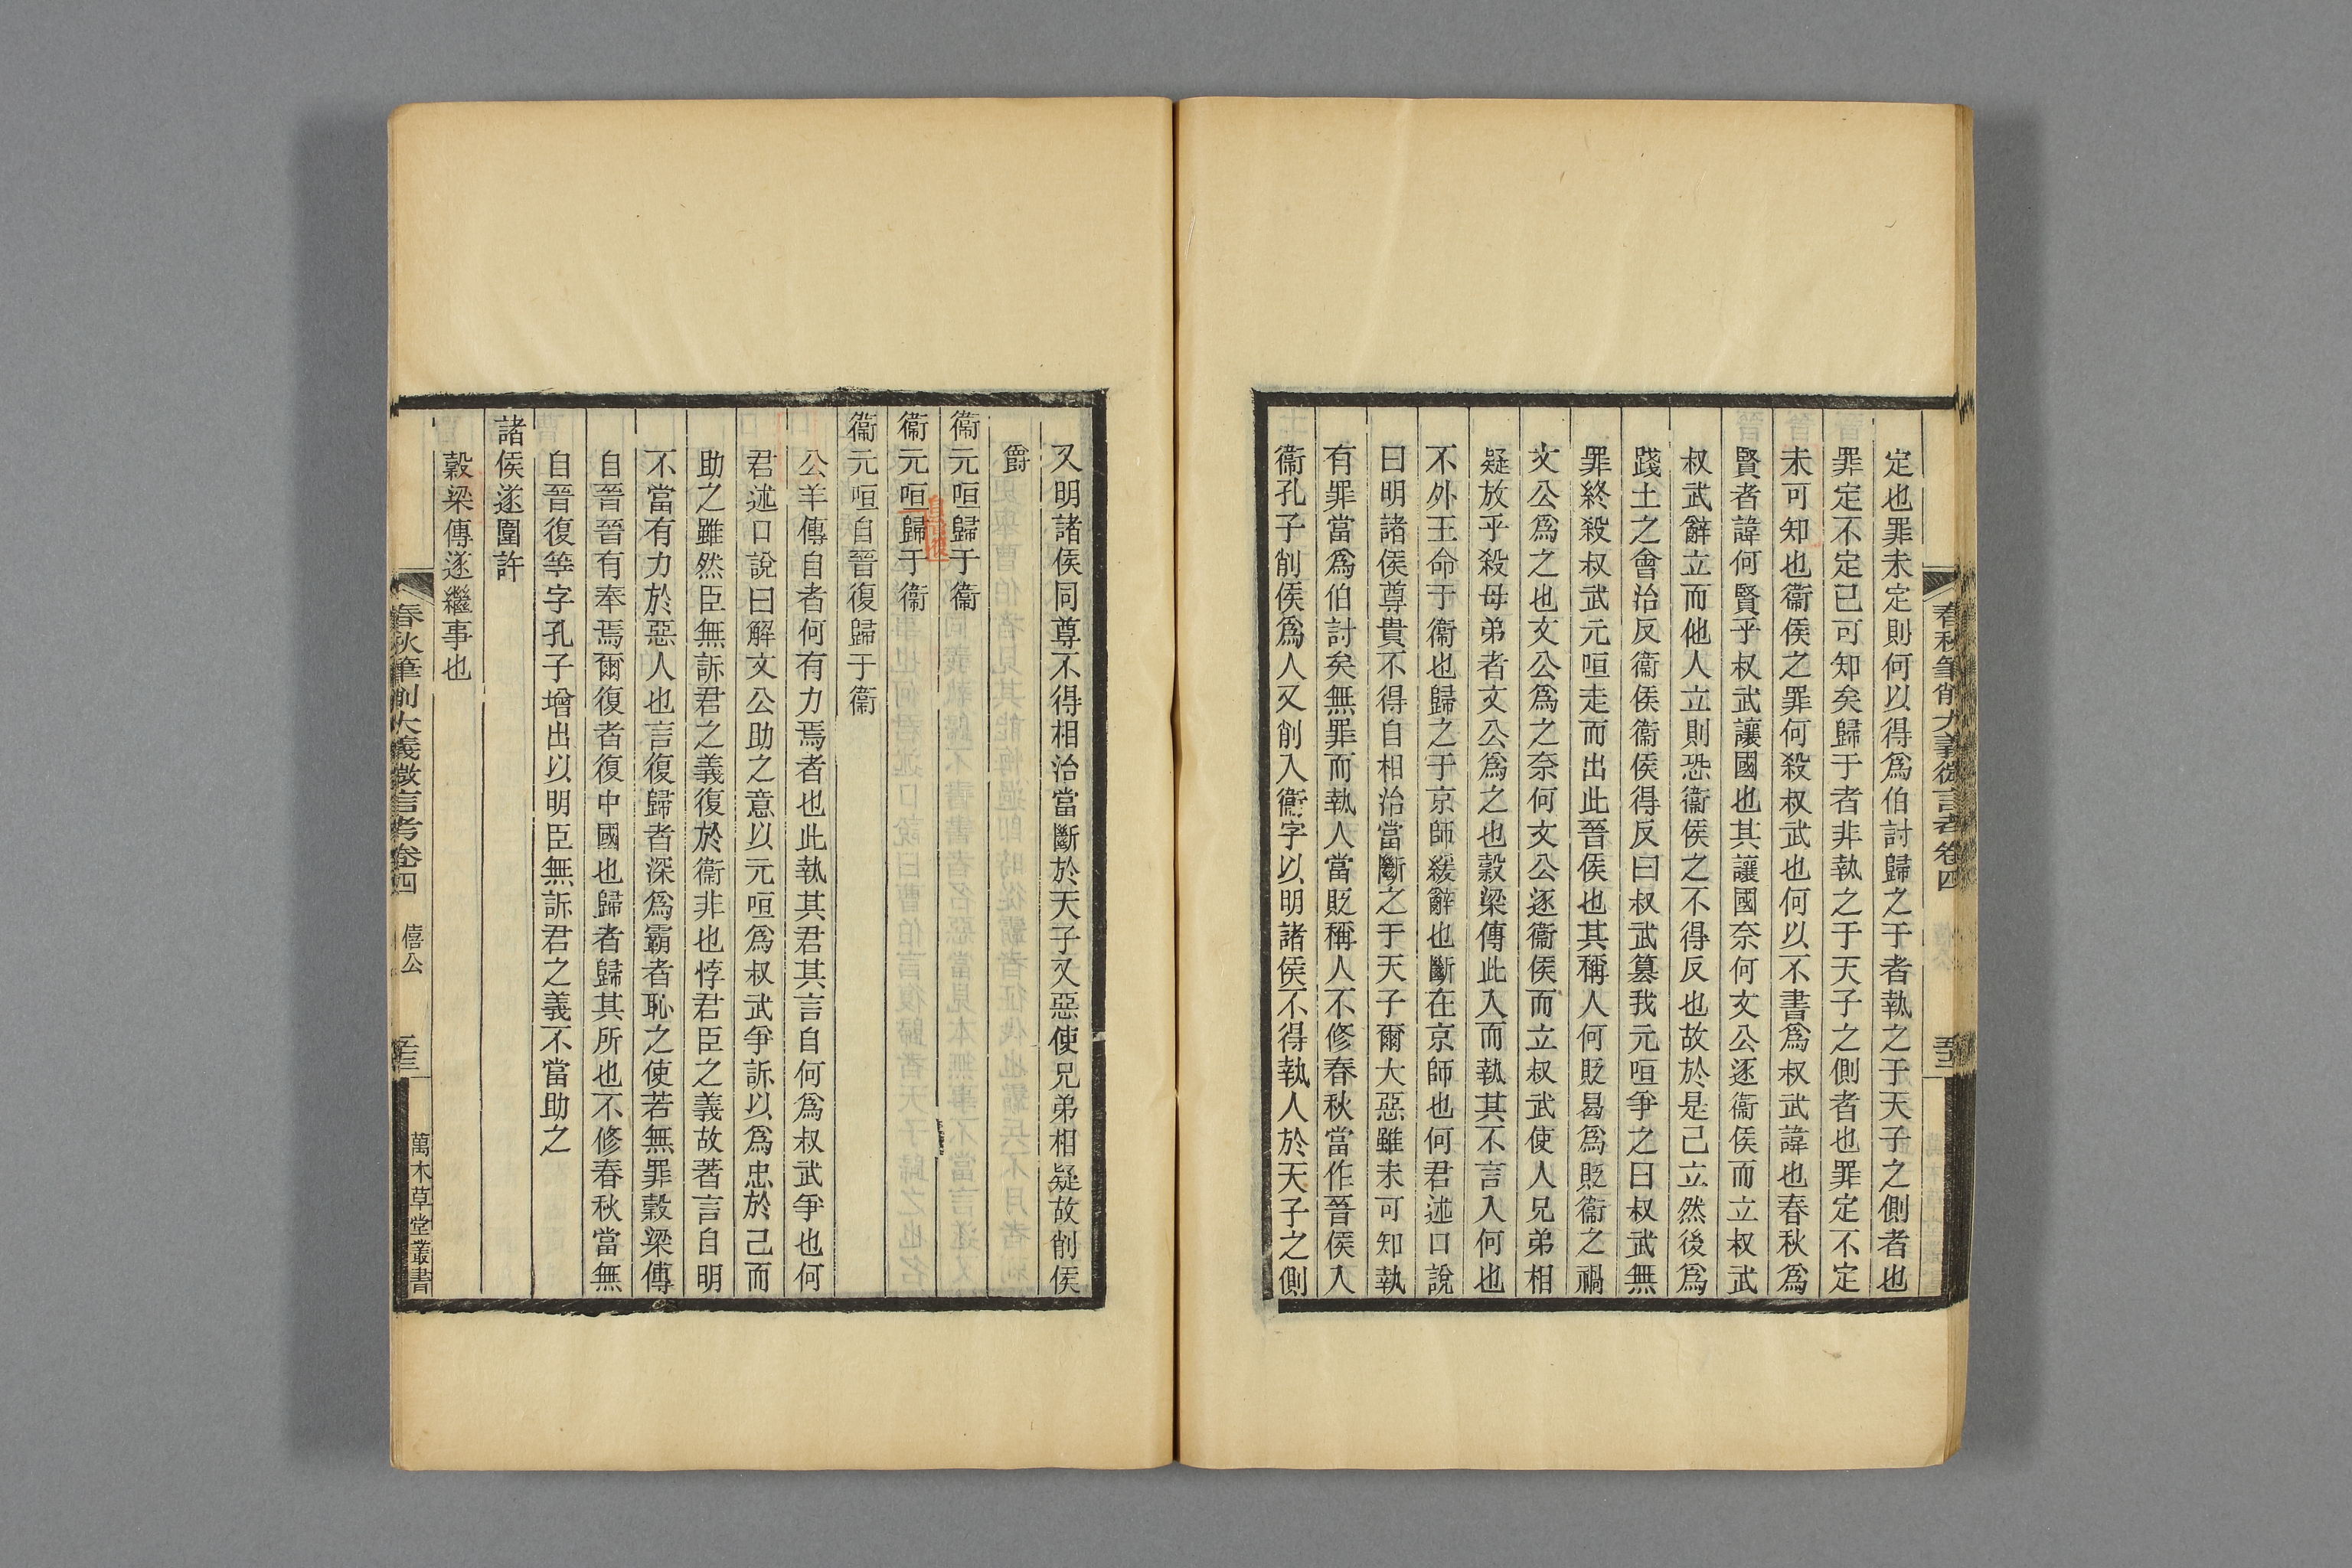 定也罪未定則何以得爲伯討歸之于者執之于天子之側者也
罪定不定已可知矣歸于者非執之于天子之側者也罪定不定
未可知也衞侯之罪何殺叔武也何以不書爲叔武諱也春秋爲
賢者諱何賢乎叔武讓國也其讓國奈何文公逐衞侯而立叔武
叔武辭立而他人立則恐衞侯之不得反也故於是己立然後爲
踐土之會治反衞侯衞侯得反曰叔武篡我元咺爭之曰叔武無
罪終殺叔武元咺走而出此晉侯也其稱人何貶曷爲貶衞之禍
文公爲之也文公爲之奈何文公逐衞侯而立叔武使人兄弟相
疑放乎殺母弟者文公爲之也穀梁傳此入而執其不言入何也
不外王命于衞也歸之于京師緩辭也斷在京師也何君述口說
曰明諸侯尊貴不得自相治當斷之于天子爾大惡雖未可知執
有罪當爲伯討矣無罪而執人當貶稱人不修春秋當作晉侯入
衞孔子削侯爲人又削入衞字以明諸侯不得執人於天子之側
春秋筆削大義微言考卷四
又明諸侯同尊不得相治當斷於天子又惡使兄弟相疑故削侯
爵
衞元咺歸于衞
衞元咺歸于衞
衞元咺自晉復歸于衞
公羊傳自者何有力焉者也此執其君其言自何爲叔武爭也何
君述口說曰解文公助之意以元咺爲叔武爭訴以爲忠於己而
助之雖然臣無訴君之義復於衞非也悖君臣之義故著言自明
不當有力於惡人也言復歸者深爲霸者恥之使若無罪穀梁傳
自晉晉有奉焉爾復者復中國也歸者歸其所也不修春秋當無
自晉復等字孔子增出以明臣無訴君之義不當助之
諸侯遂圍許
穀梁傳遂繼事也
春秋筆削大義微言考卷四 僖公
萬木草堂叢書